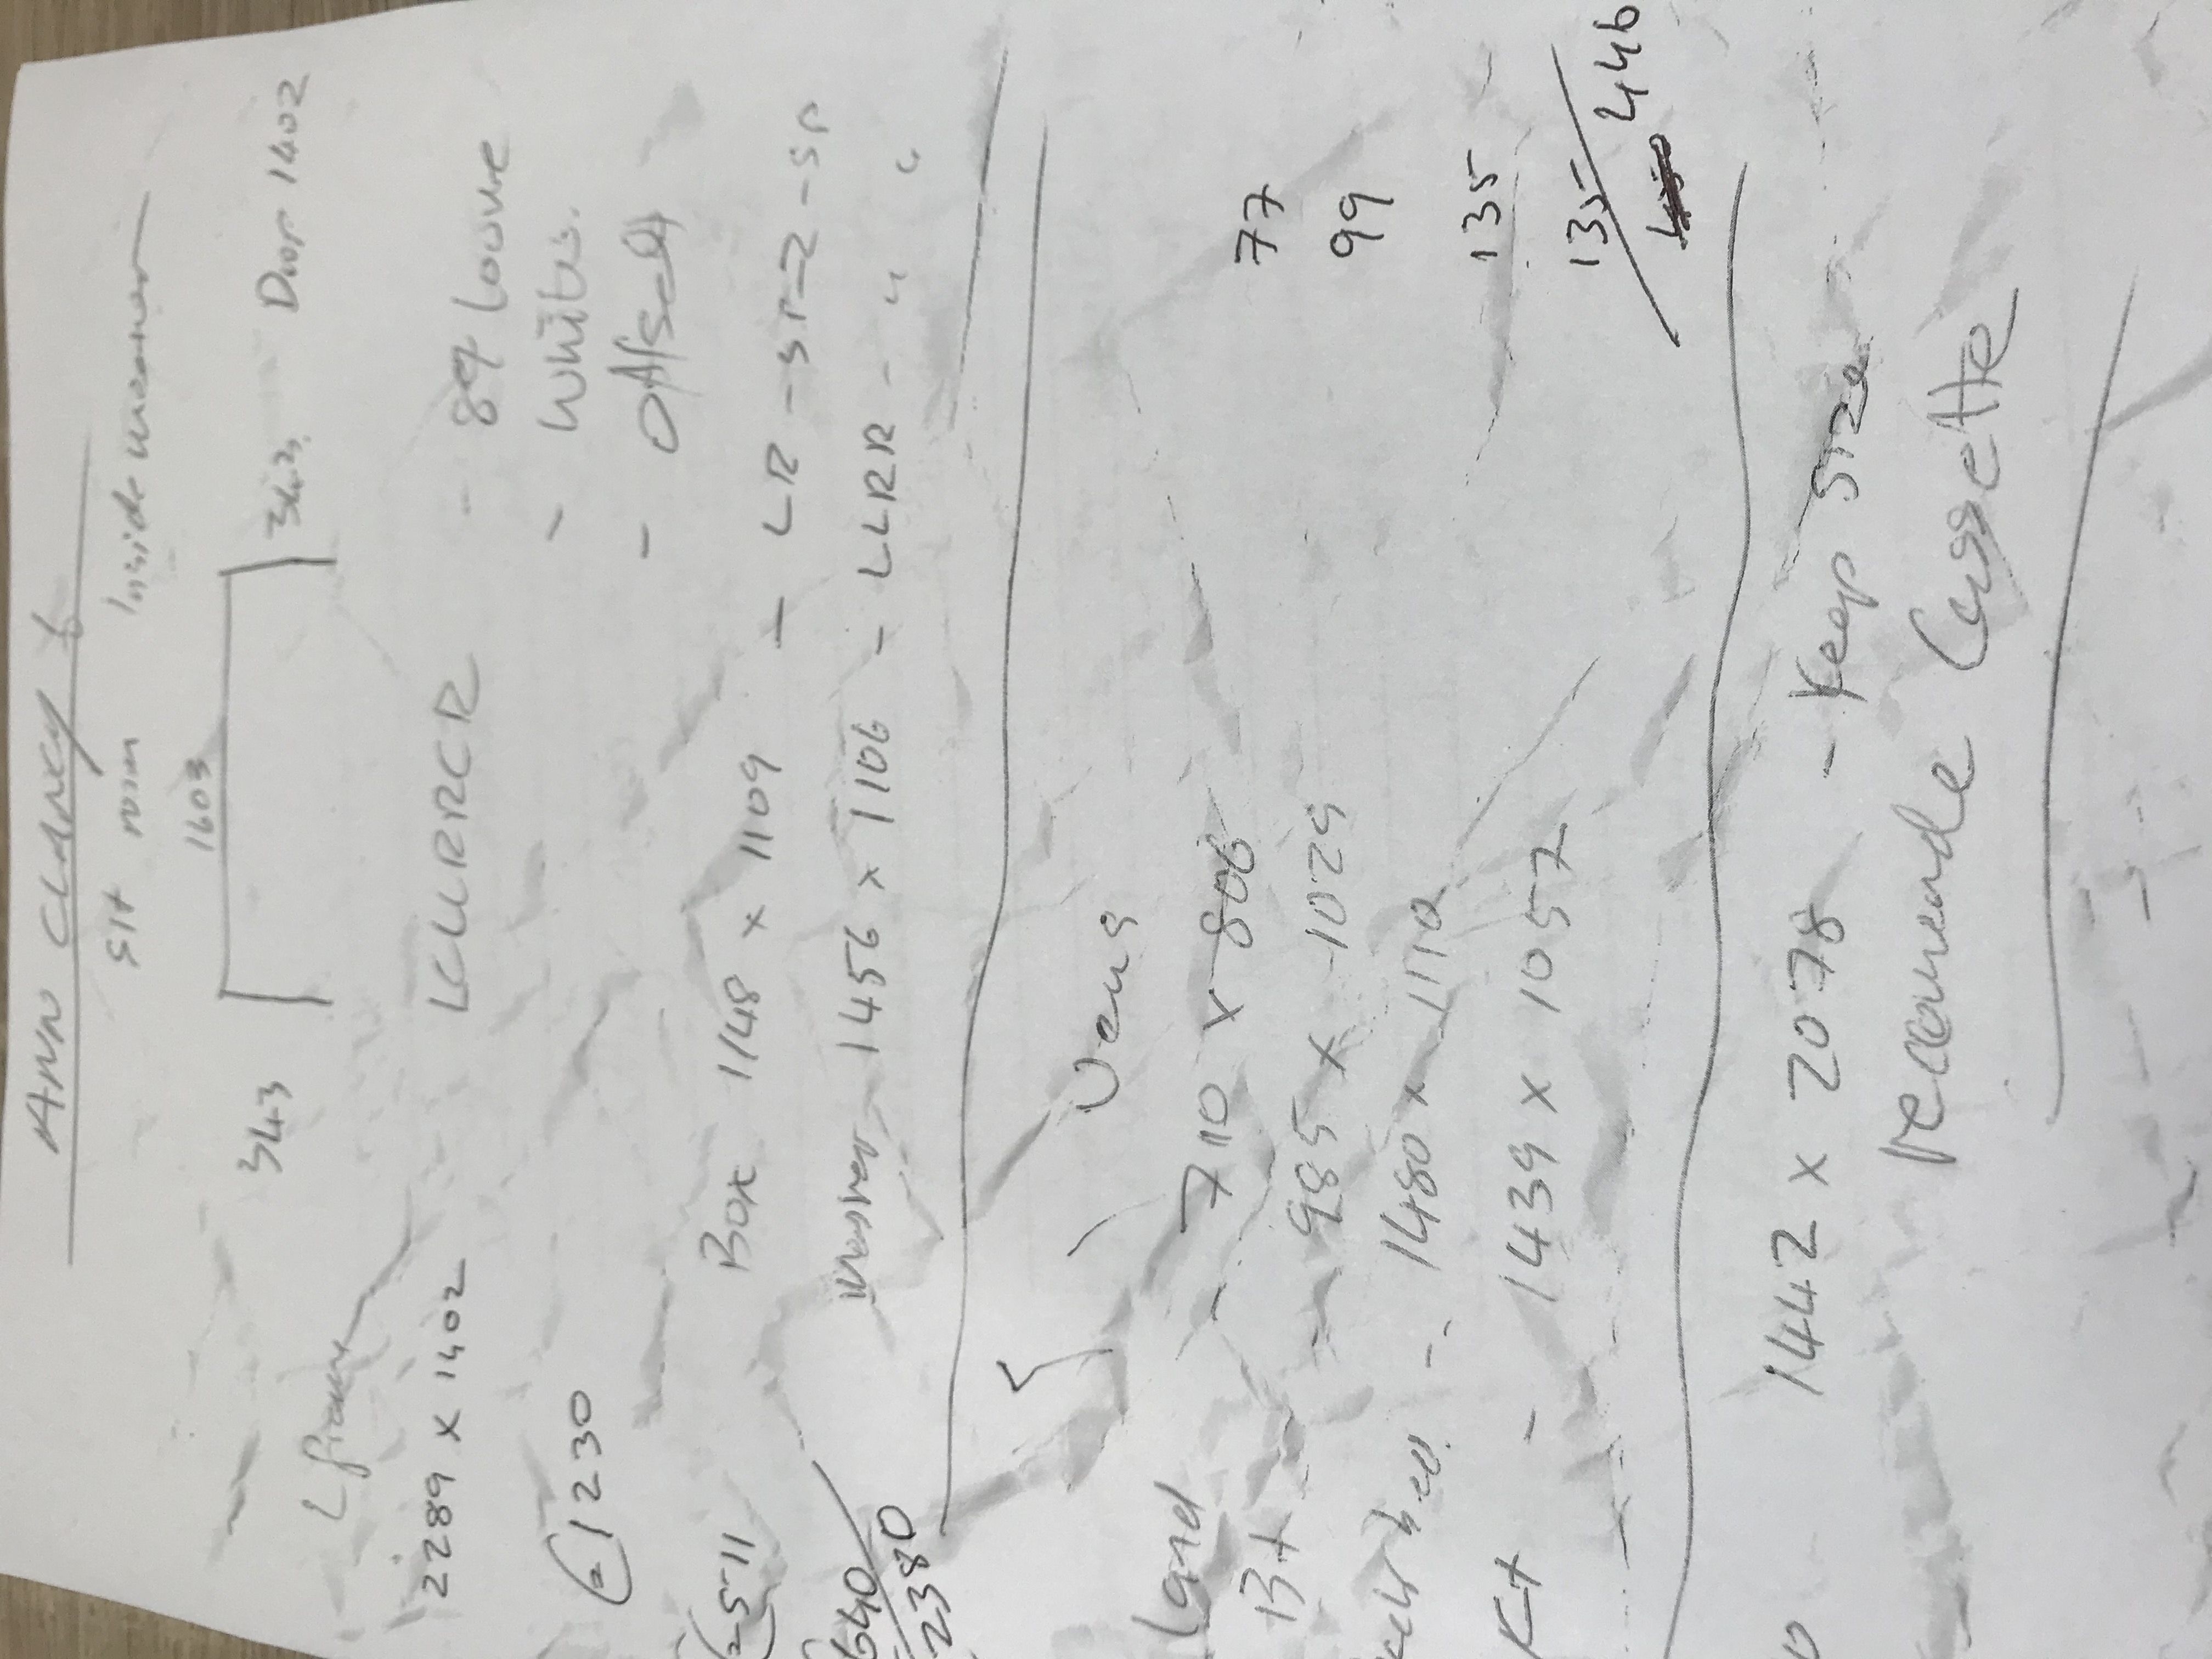 ANN CLANCY
Sit room Inside measner
1603
343 343 Drop 1402
L frame
2289 x 1402 LCLLRRCR - 89 Louvre
€1230 - White
- Offsett
€511 Box 1148 x 1109 - LR - SP=2-SP
640 Master 1456 x 1106 - LLRR - " "
2380
Vens
Land - 710 x 806 77
Bt - 985 x 1029 99
bed - 1480 x 1110 135
Kt - 1439 x 1057 135
446
1442 x 2078 - Keep Size
recomende Cassette